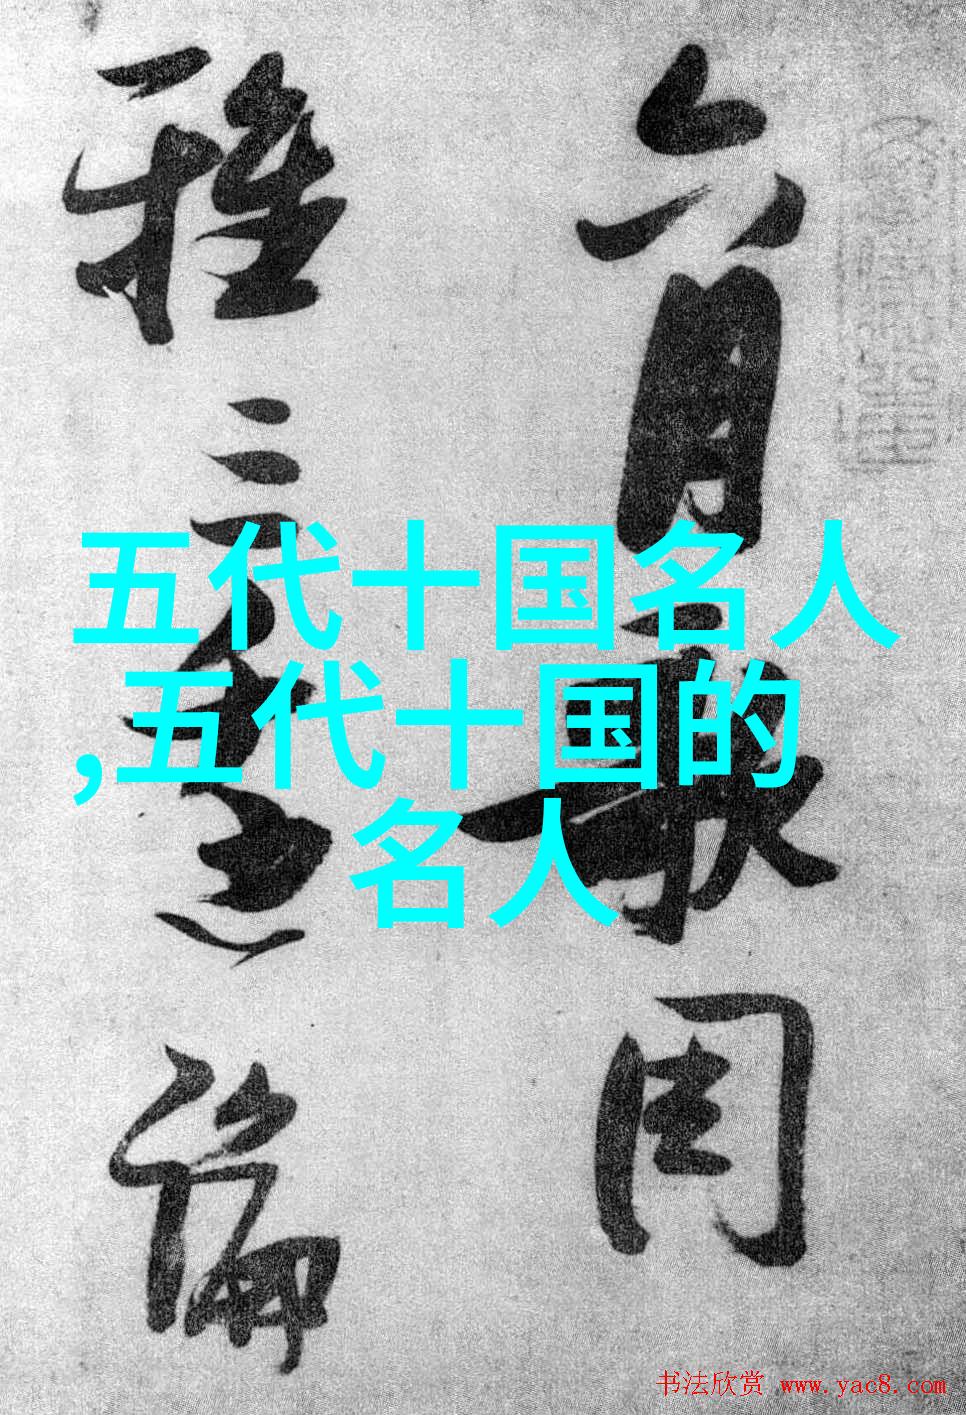 六月周
三論
五代十国名人
,五代十国的
名人
书法欣赏 www.yac8.com